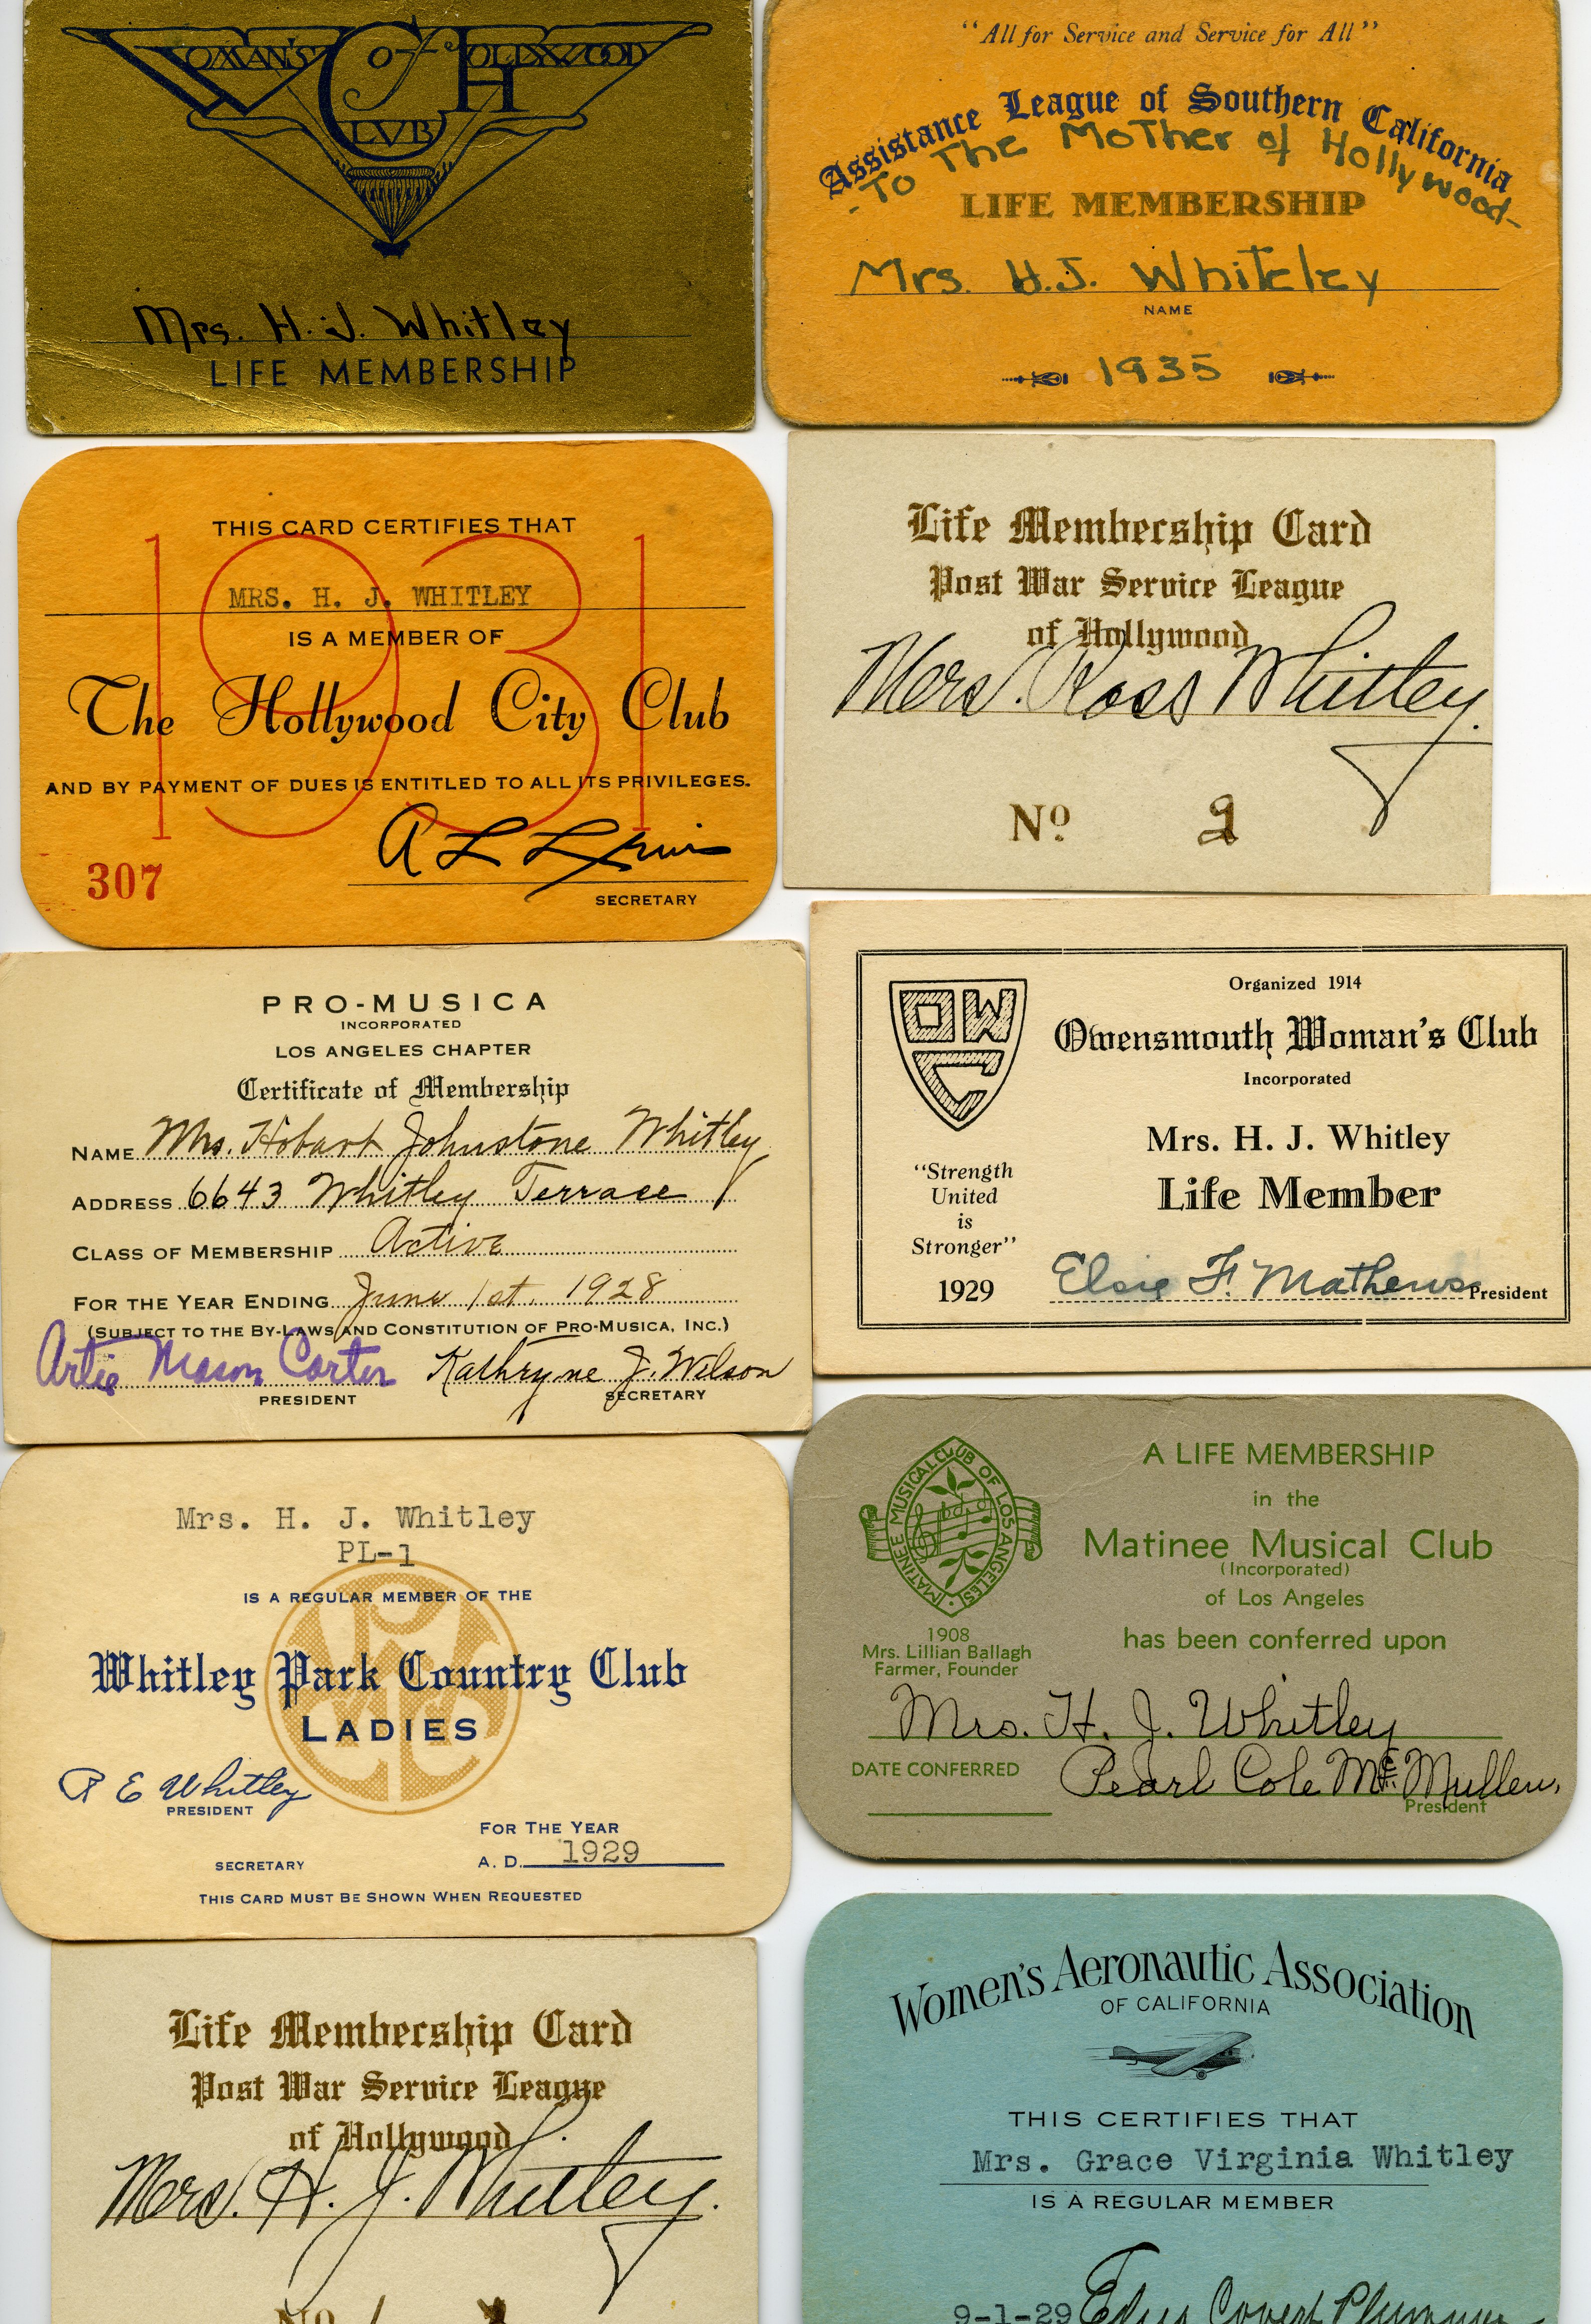 WOMAN'S CLUB Of HOLLYWOOD
Mrs. H. J. Whitley
LIFE MEMBERSHIP
"All for Service and Service for All"
Assistance League of Southern California
-To The Mother of Hollywood-
LIFE MEMBERSHIP
Mrs. H.J. Whiteley
NAME
1935
THIS CARD CERTIFIES THAT
1931
MRS. H. J. WHITLEY
IS A MEMBER OF
The Hollywood City Club
AND BY PAYMENT OF DUES IS ENTITLED TO ALL ITS PRIVILEGES.
A L
307
SECRETARY
Life Membership Card
Post War Service League
of Hollywood
Mrs. Ross Whitley.
No 2
PRO-MUSICA
INCORPORATED
LOS ANGELES CHAPTER
Certificate of Membership
NAME Mrs. Hobart Johnstone Whitley
ADDRESS 6643 Whitley Terrace
CLASS OF MEMBERSHIP Active
FOR THE YEAR ENDING June 1st. 1928
(SUBJECT TO THE BY-LAWS AND CONSTITUTION OF PRO-MUSICA, INC.)
Artie Mason Carter Kathryne J. Wilson
PRESIDENT SECRETARY
OWC
Organized 1914
Owensmouth Woman's Club
Incorporated
Mrs. H. J. Whitley
Life Member
"Strength
United
is
Stronger"
1929 Elsie F. Mathews President
Mrs. H. J. Whitley
PL-1
IS A REGULAR MEMBER OF THE
Whitley Park Country Club
LADIES
R E Whitley
PRESIDENT
FOR THE YEAR
SECRETARY A. D. 1929
THIS CARD MUST BE SHOWN WHEN REQUESTED
MATINEE MUSICAL CLUB OF LOS ANGELES
1908
Mrs. Lillian Ballagh
Farmer, Founder
A LIFE MEMBERSHIP
in the
Matinee Musical Club
(Incorporated)
of Los Angeles
has been conferred upon
Mrs. H. J. Whitley
DATE CONFERRED Pearl Cole McMullen,
President
Life Membership Card
Post War Service League
of Hollywood
Mrs. H. J. Whitley.
No 1
Women's Aeronautic Association
OF CALIFORNIA
THIS CERTIFIES THAT
Mrs. Grace Virginia Whitley
IS A REGULAR MEMBER
9-1-29 Covert Plummer